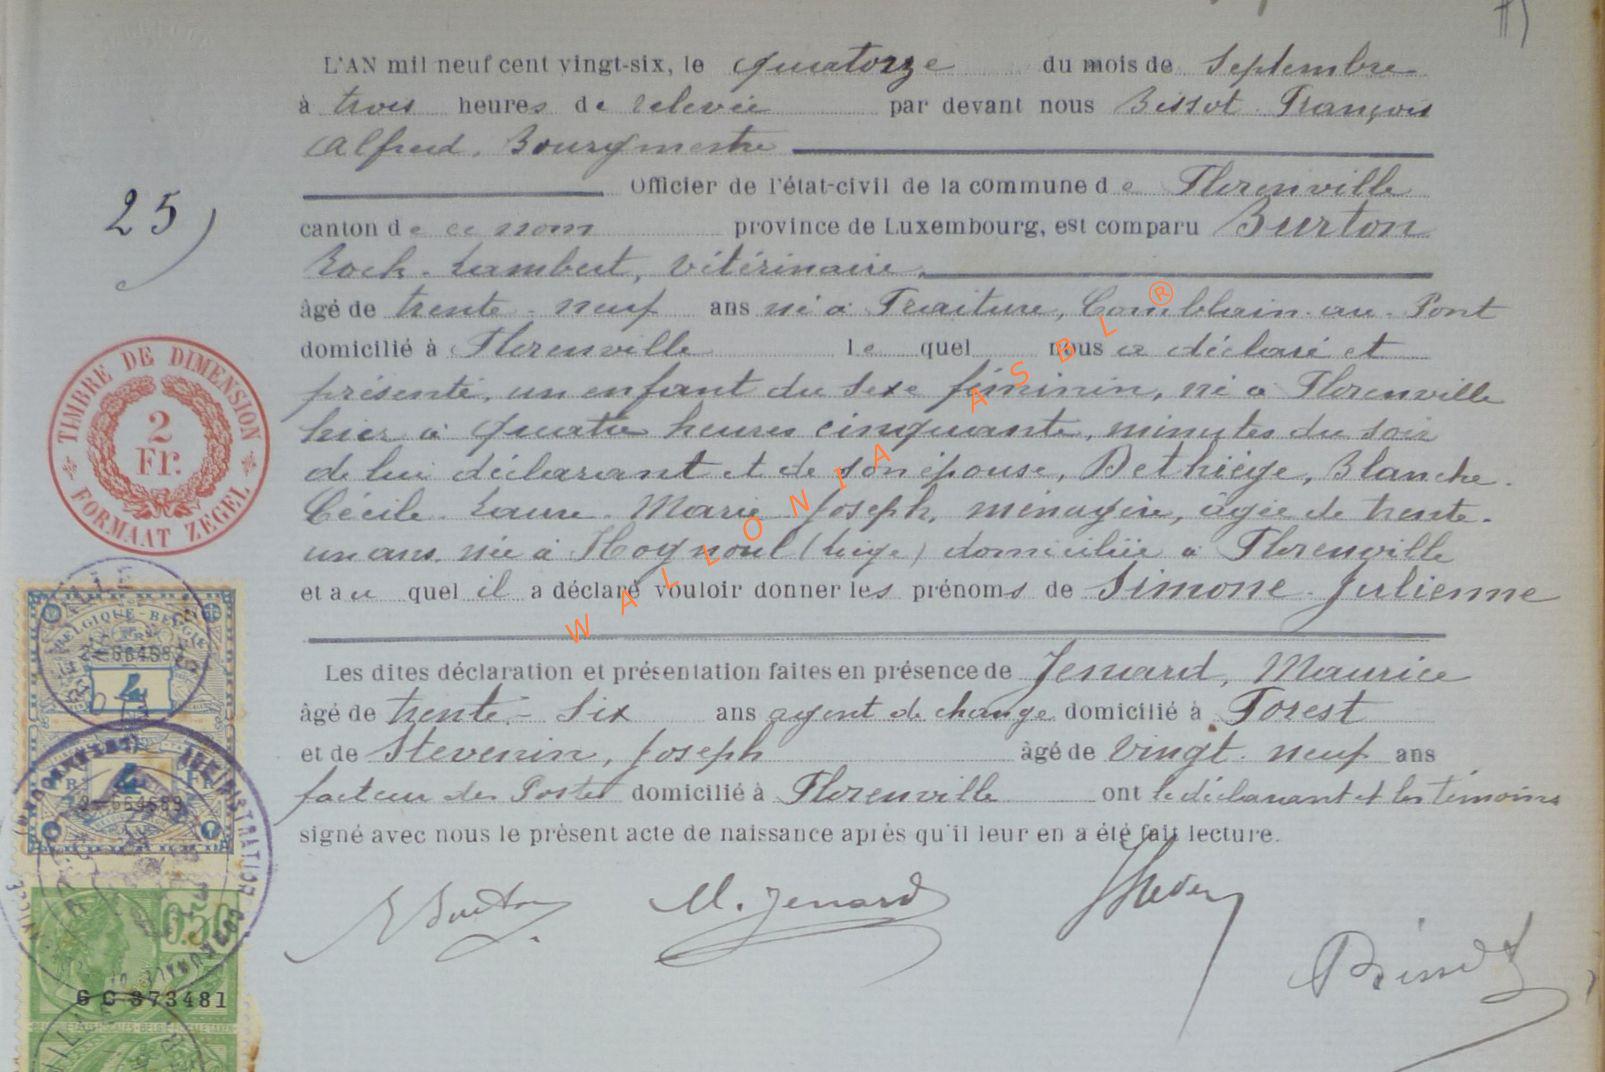 L'AN mil neuf cent vingt-six, le quatorze du mois de Septembre
à trois heures de relevée par devant nous Bissot François
Alfred, Bourgmestre
Officier de l'état-civil de la commune de Florenville
canton de ce nom province de Luxembourg, est comparu Burton
Roch-Lambert, vétérinaire,
25)
âgé de trente-neuf ans né à Fraiture, Comblain-au-Pont
domicilié à Florenville lequel nous a déclaré et
présenté, un enfant du sexe féminin, né à Florenville
hier à quatre heures cinquante, minutes du soir
de lui déclarant et de son épouse, Dethiège, Blanche-
Cécile-Laure-Marie-Joseph, ménagère, âgée de trente-
un ans, née à Hognoul (Liége) domiciliée à Florenville
et auquel il a déclaré vouloir donner les prénoms de Simone-Julienne
Les dites déclaration et présentation faites en présence de Jenard, Maurice
âgé de trente-six ans agent de change domicilié à Forest
et de Stevenin, Joseph âgé de vingt-neuf ans
facteur des Postes domicilié à Florenville ont le déclarant et les témoins
signé avec nous le présent acte de naissance après qu'il leur en a été fait lecture.
M. Jenard
TIMBRE DE DIMENSION
2
Fr.
FORMAAT ZEGEL
BELGIQUE-BELGIË
4
4
0.50
GC 373481
WALLONIA ASBL ®